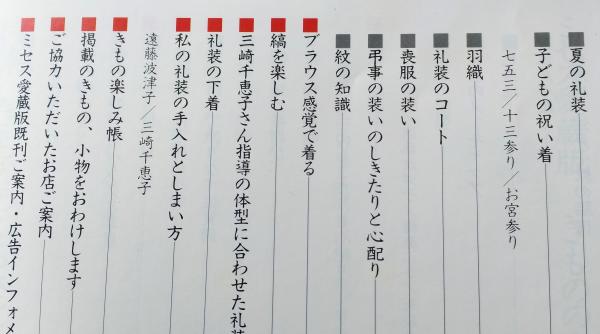 夏の礼装
子どもの祝い着
七五三／十三参り／お宮参り
羽織
礼装のコート
喪服の装い
弔事の装いのしきたりと心配り
紋の知識
ブラウス感覚で着る
縞を楽しむ
三崎千恵子さん指導の体型に合わせた礼装
礼装の下着
私の礼装の手入れとしまい方
遠藤波津子／三崎千恵子
きもの楽しみ帳
掲載のきもの、小物をおわけします
ご協力いただいたお店ご案内
ミセス愛蔵版既刊ご案内・広告インフォメ